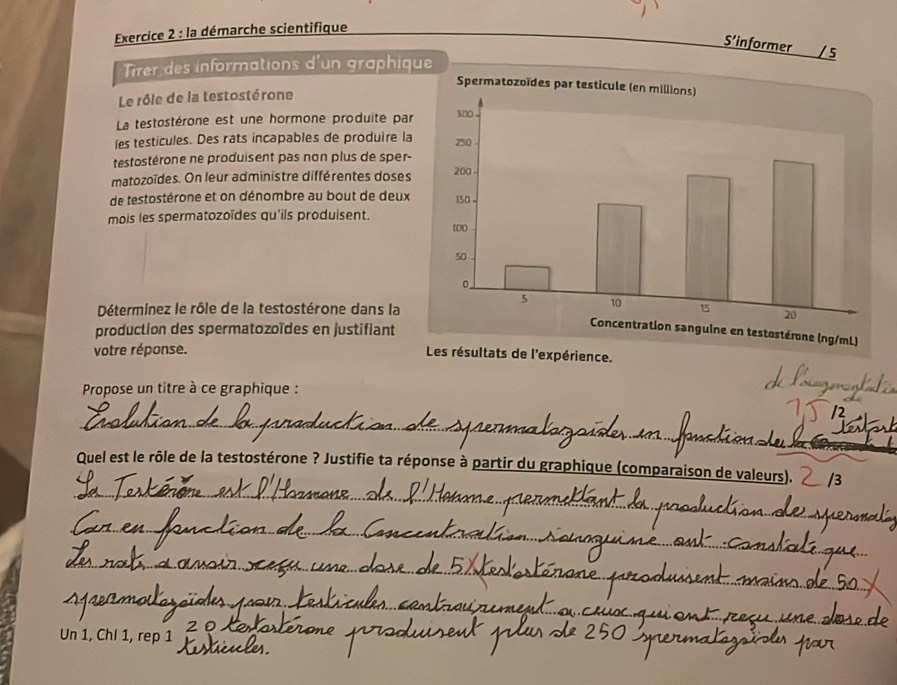 Exercice 2 : la démarche scientifique
S'informer /5
Tirer des informations d'un graphique
Le rôle de la testostérone
La testostérone est une hormone produite par
les testicules. Des rats incapables de produire la
testostérone ne produisent pas non plus de sper-
matozoïdes. On leur administre différentes doses
de testostérone et on dénombre au bout de deux
mois les spermatozoïdes qu'ils produisent.
Déterminez le rôle de la testostérone dans la
production des spermatozoïdes en justifiant
votre réponse.
Spermatozoïdes par testicule (en millions)
300
250
200
150
100
50
0
5 10 15 20
Concentration sanguine en testostérone (ng/mL)
Les résultats de l'expérience.
Propose un titre à ce graphique :
de l'augmentation
de
1,5 /2
Evolution de la production de spermatozoïdes en fonction de la
Quel est le rôle de la testostérone ? Justifie ta réponse à partir du graphique (comparaison de valeurs). 2 /3
La Testérone est l'Hormone de l'Homme permettant la production des
Car en fonction de la Concentration sanguine ont constate que
Les rats a avoir reçu une dose de 5 testostérone produisent moins de 50
spermatozoïdes par testicules contrairement a ceux qui ont reçu une dose de
20 testostérone produisent plus de 250 spermatozoïdes par
testicules.
Un 1, Chl 1, rep 1